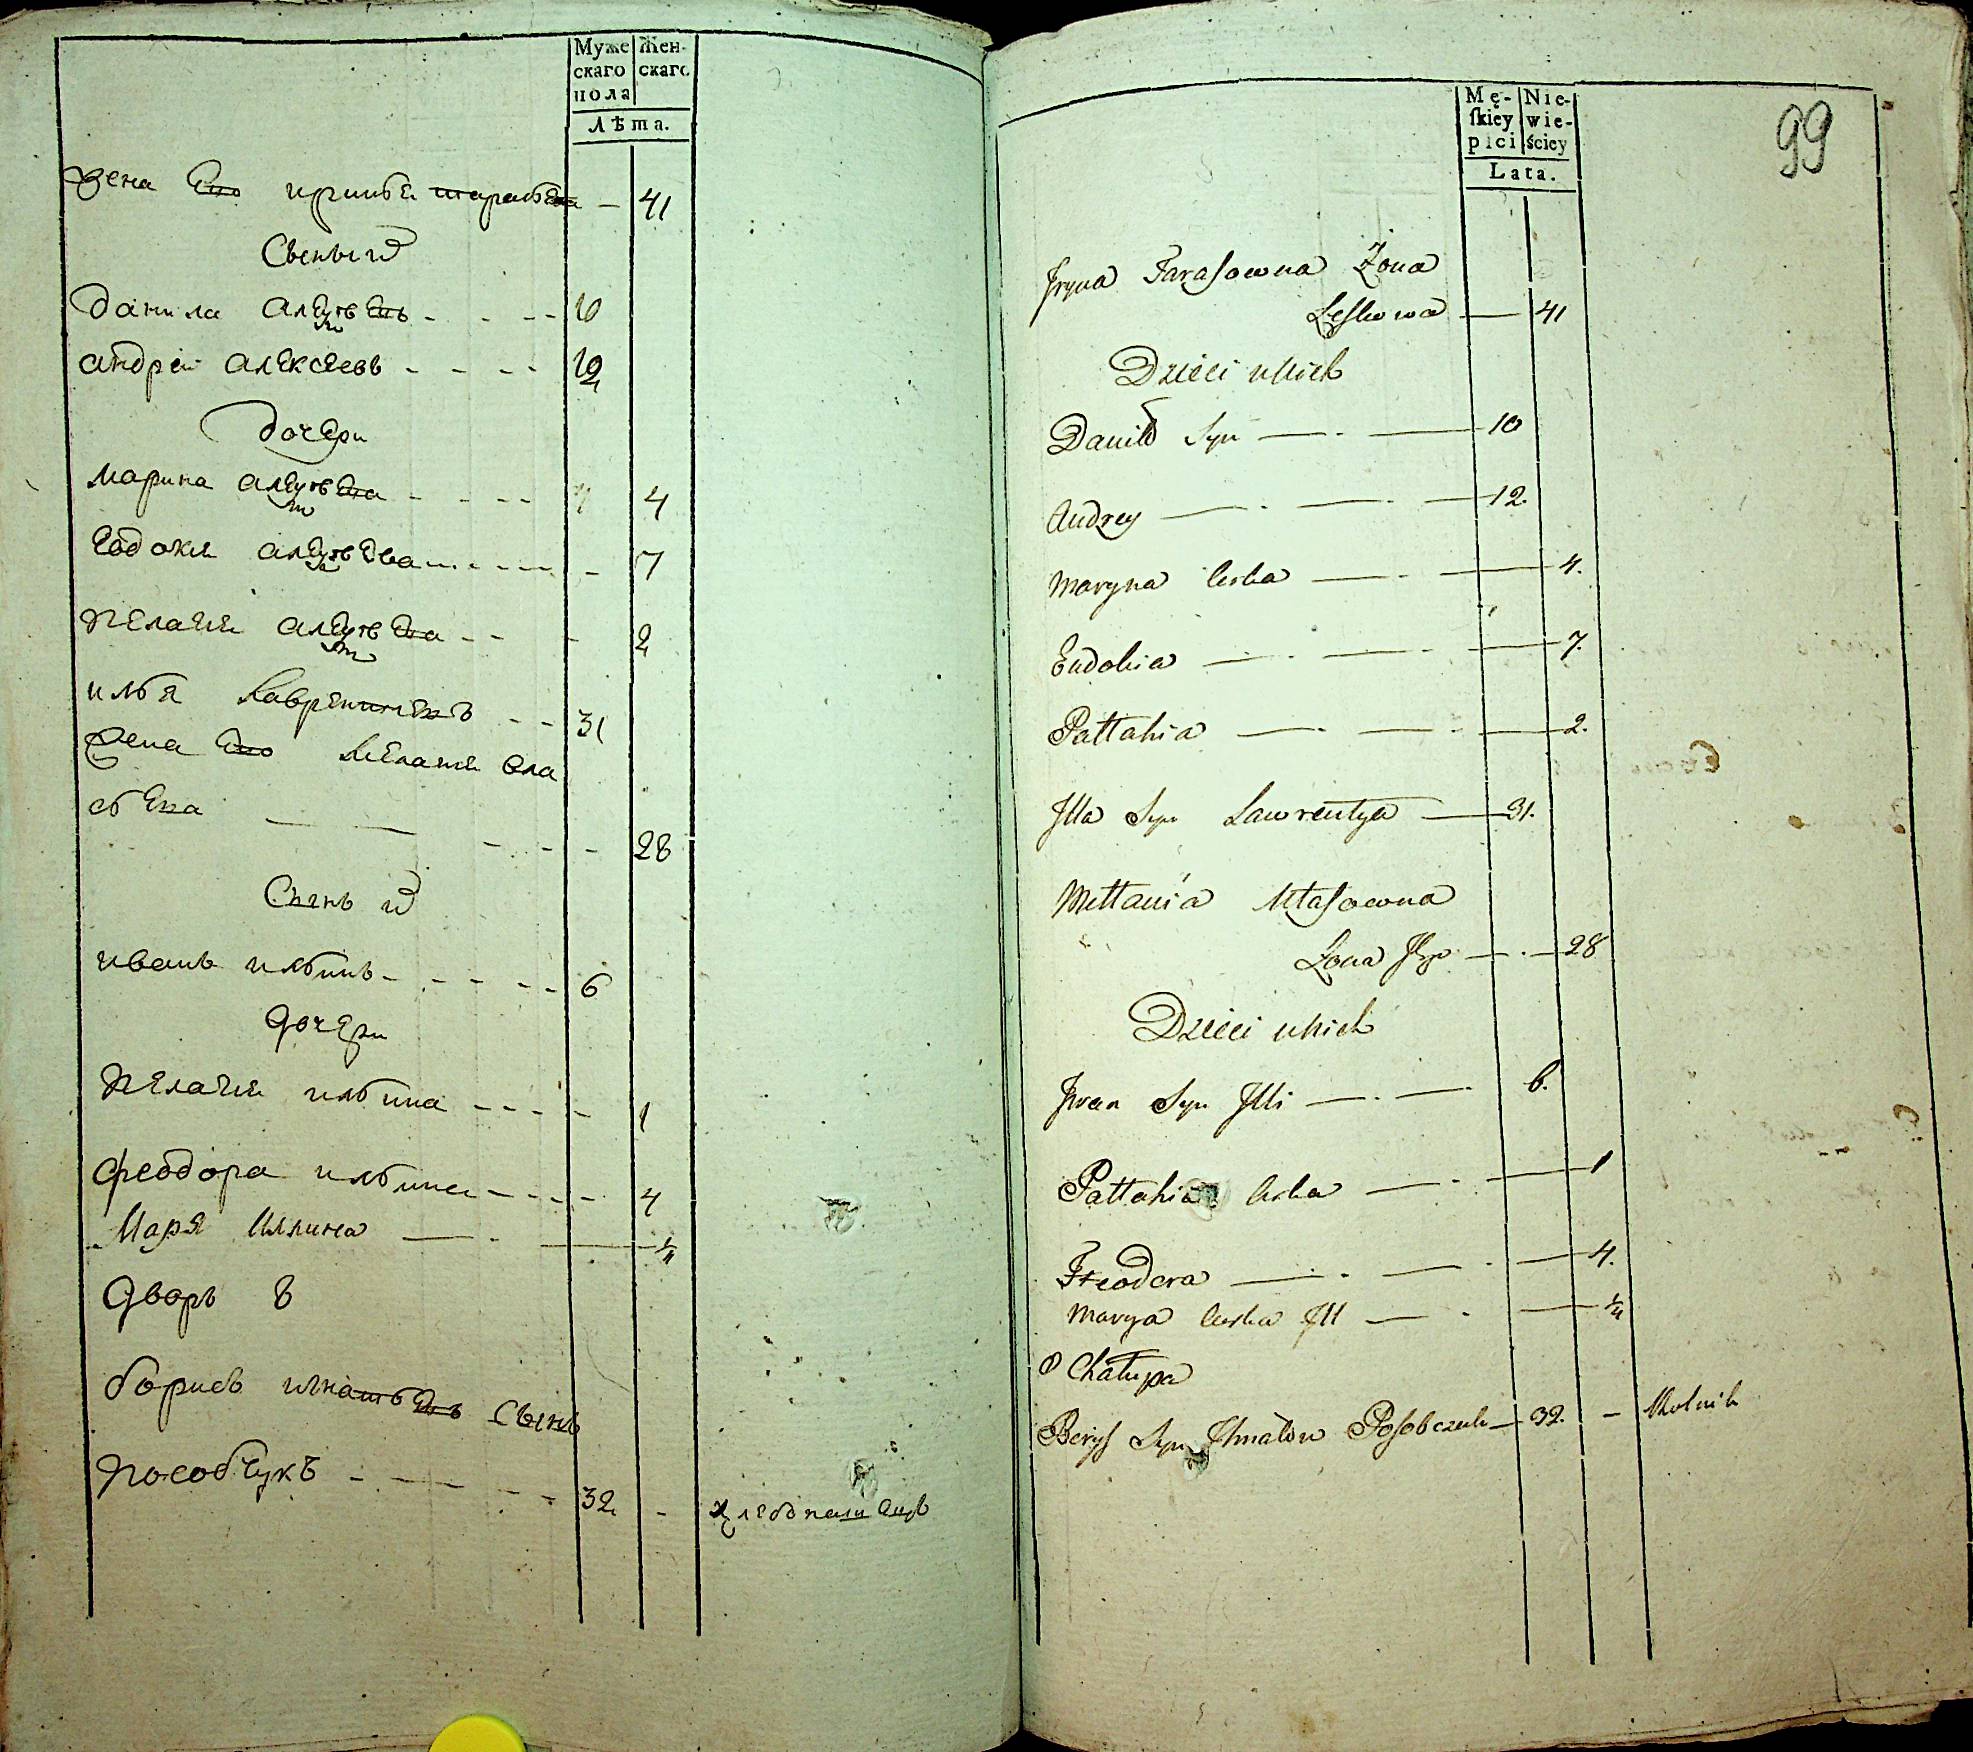 Муже
скаго
пола
Жен-
скаго
Лѣта.
жена Его иринья тарасьева — 41
Сыны их
данила алеуѣевъ - - - - 10
андреи алексеевъ - - - - 12
дочери
марина алеуѣева - - - - 4
Евдокия алеуѣева - - - - 7
пелагия алеуѣева - - - 2
илья Лаврентиевъ - - 31
жена Его Мелания вла
сьева — — - - - 28
Сынь их
иванъ ильинъ - - - - - 6
дочери
пелагия ильина - - - - 1
феодора ильина - - - - 4
Маря Ильина — - — 1/4
Дворъ 8
борисъ игнатьевъ Сынъ
пособчукъ - - - - - 32 - хлебопашецъ
99
Mę-
skiey
płci
Nie-
wie-
ściey
Lata.
Jryna Tarasowna Żona
Leskowa — 41
Dzieci u nich
Daniło Syn — - — 10
Andrey — - — - — 12.
Maryna Curka — - — 4.
Eudokia — - — - — 7.
Pałłahia — - — - — 2.
Jlla Syn Lawrentya — 31.
Mełłania Ułasowna
Żona Jlly — - — 28
Dzieci u nich
Jwan Syn Jlli — - — - 6.
Pałłahia Curka — - — 1
Fteodora — - — - — 4.
Marya Curka Jll — - — 1/4
8 Chałupa
Borys Syn Jhnatow Posobczuk — 32. - Rolnik